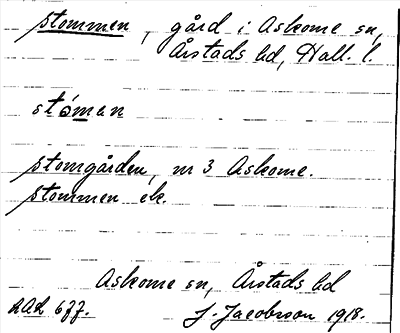 stommen, gård i Askome sn,
Årstads hd, Hall. l.
stómen
stomgården, nr 3 Askome.
stommen ek.
Askome sn, Årstads hd
DAL 677. J. Jacobsson 1918.